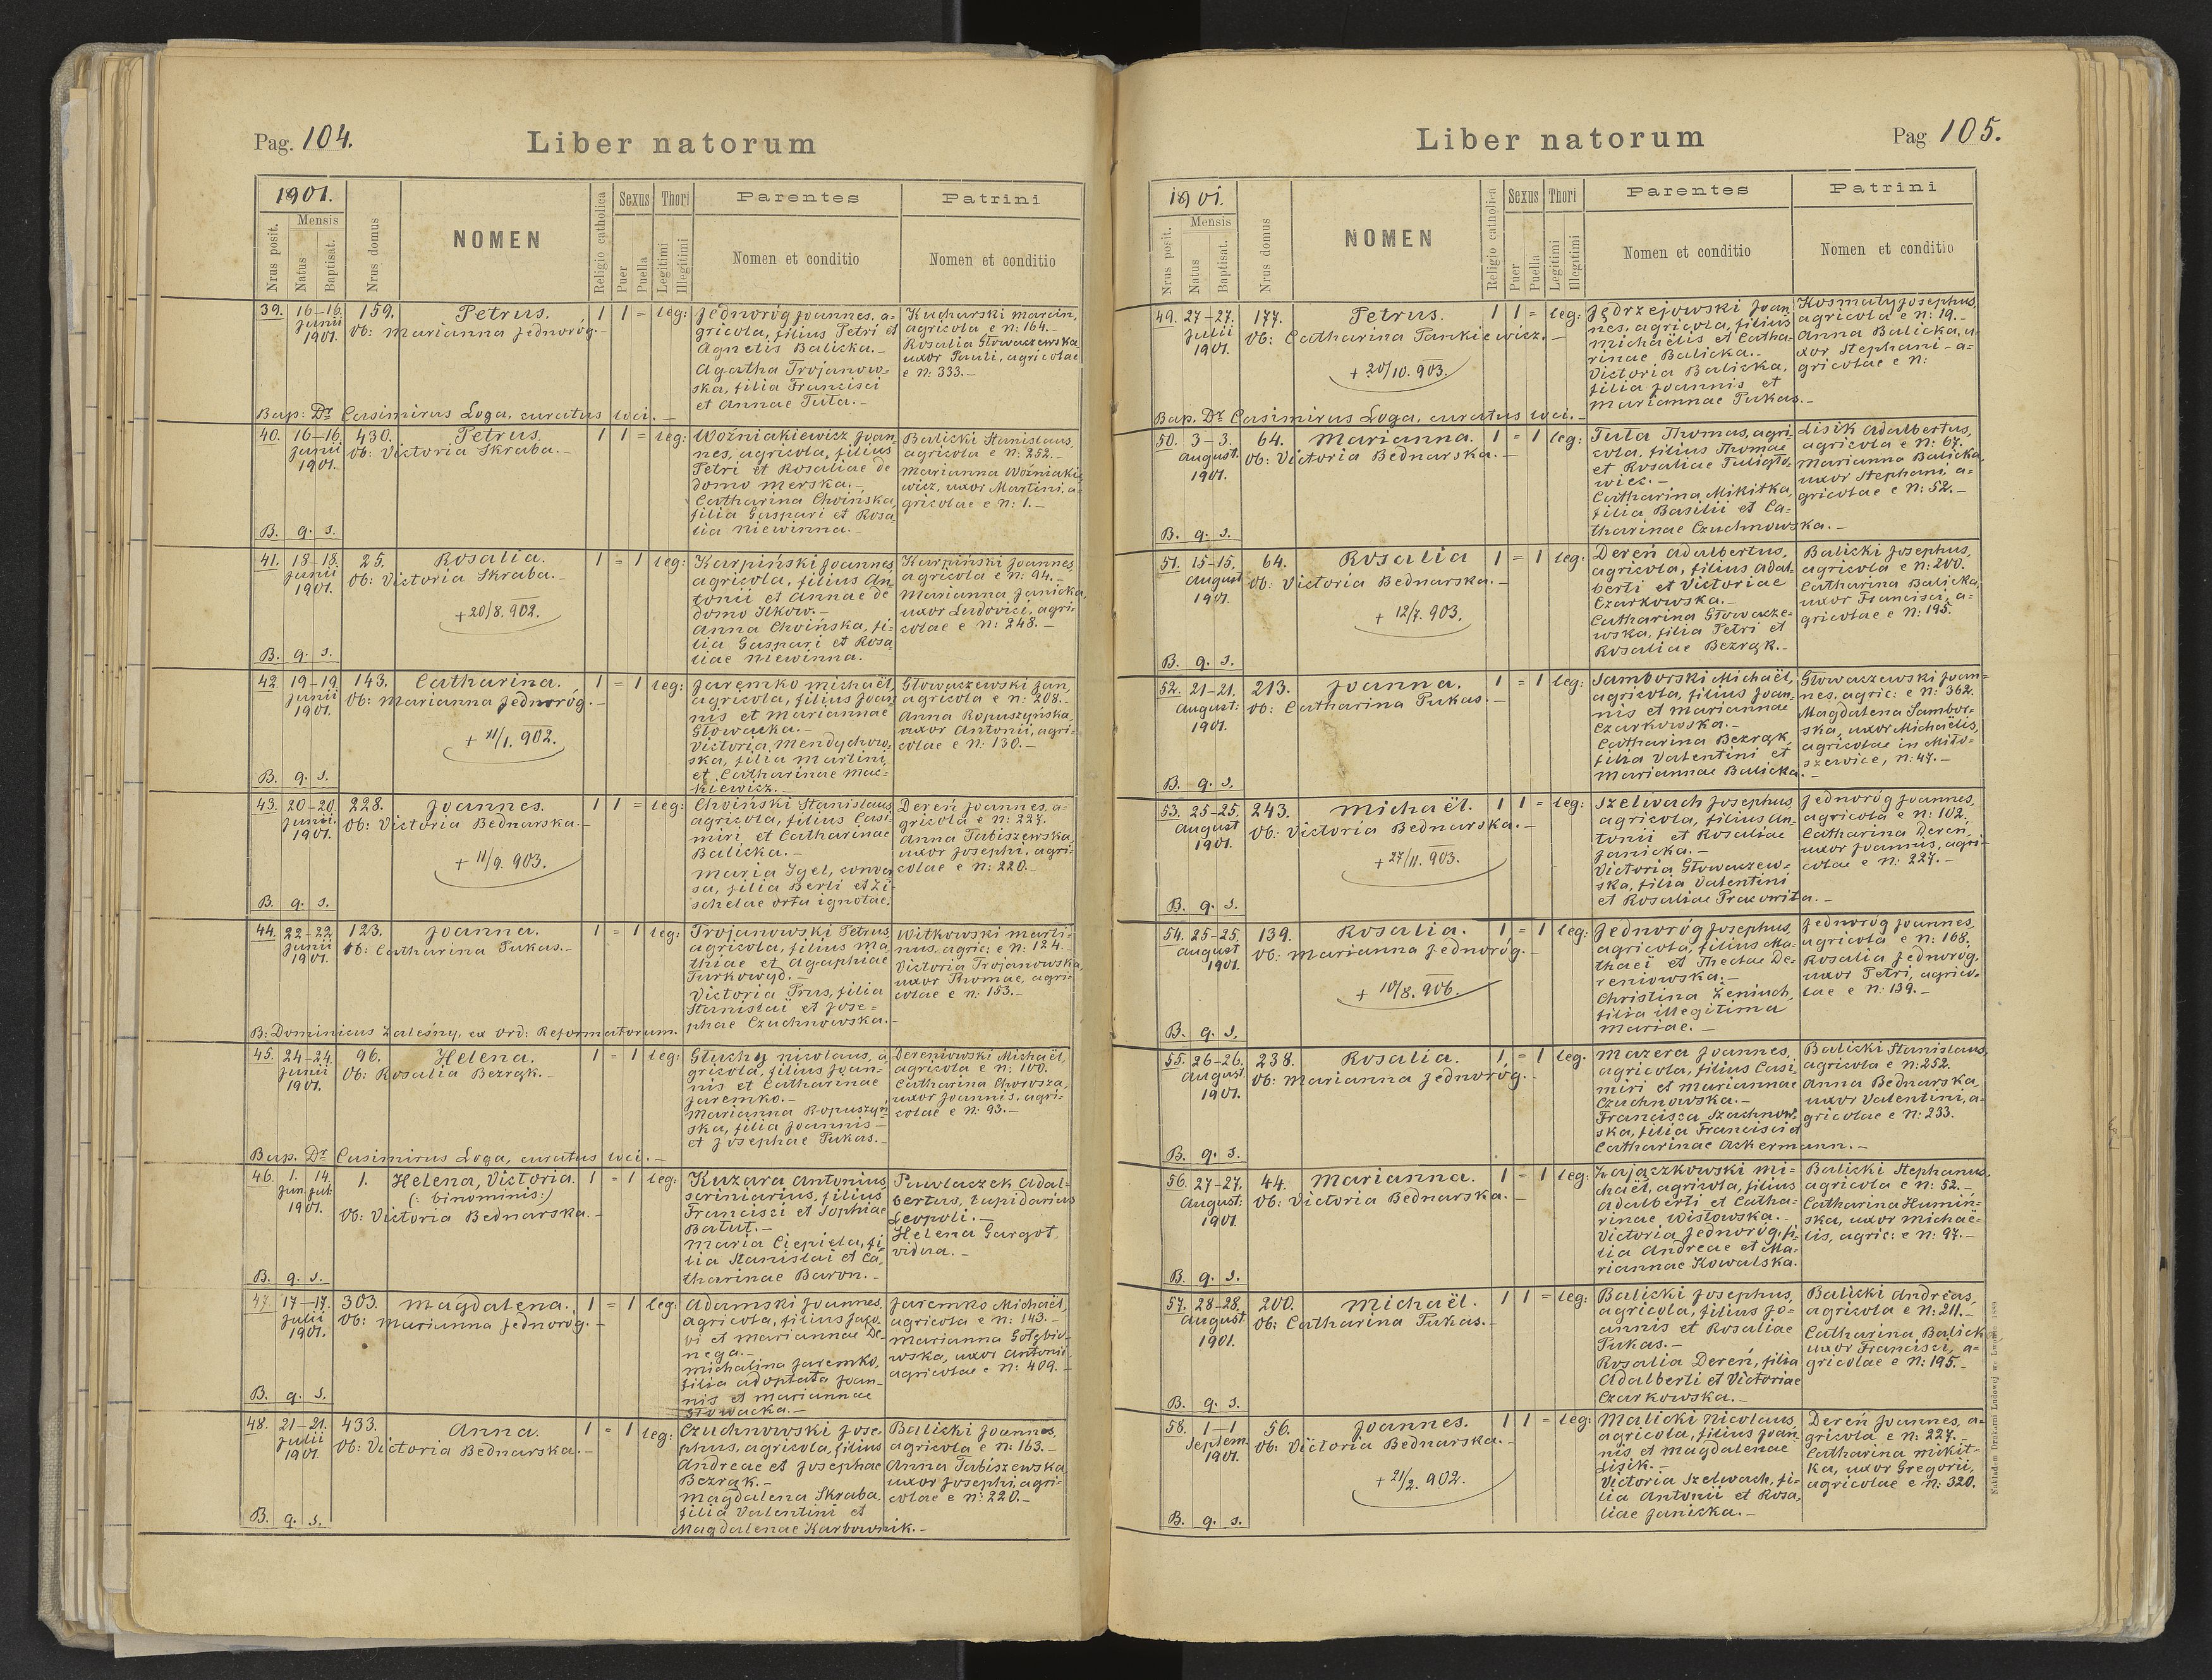 Pag. 104.
Liber natorum
1901.
Nrus posit.
Mensis
Natus
Baptisat.
Nrus domus
NOMEN
Religio catholica
Sexus
Puer
Puella
Thori
Legitimi
Illegitimi
Parentes
Nomen et conditio
Patrini
Nomen et conditio
39. 16-16. 159. Petrus. 1 1 = leg:
Junii
1901.
Ob: Marianna Jednoróg.-
Jednoróg Joannes, a=
gricola, filius Petri et
Agnetis Balicka.-
Agatha Trojanow=
ska, filia Francisci
et Annae Tuta.-
Kucharski Marcin,
agricola e N: 164.-
Rosalia Głowaczewska
uxor Pauli, agricolae
e N: 333.-
Bap: Dr Casimirus Loga, curatus loci.-
40. 16-16. 430. Petrus. 1 1 = leg:
Junii
1901.
Ob: Victoria Skraba.-
Woźniakiewicz Joan
nes, agricola, filius
Petri et Rosaliae de
domo Merska.-
Catharina Choińska,
filia Gaspari et Rosa
lia Niewinna.-
Balicki Stanislaus,
agricola e N: 252.-
Marianna Woźniakie
wicz, uxor Martini, a=
gricolae e N: 1.-
B. q. s.
41. 18-18. 25. Rosalia. 1 = 1 leg:
Junii
1901.
Ob: Victoria Skraba.-
+20/8. 902.
Karpiński Joannes
agricola, filius An
tonii et Annae de
domo Ilkow.-
Anna Choińska, fi=
lia Gaspari et Rosa
liae Niewinna.
Karpiński Joannes
agricola e N: 94.-
Marianna Janicka,
uxor Ludovici, agri=
colae e N: 248.-
B. q. s.
42. 19-19. 143. Catharina. 1 = 1 leg:
Junii
1901.
Ob: Marianna Jednoróg.-
+ 11/1. 902.
Jaremko Michaël,
agricola, filius Joan
nis et Mariannae
Głowacka.-
Victoria Mendychow=
ska, filia Martini
et Catharinae Mac=
kiewicz.-
Głowaczewski Jan,
agricola e N: 208.-
Anna Kopuszyńska,
uxor Antonii, agri=
colae e N: 130.-
B. q. s.
43. 20-20. 228. Joannes. 1 1 = leg:
Junii
1901.
Ob: Victoria Bednarska.-
+ 11/9. 903.
Choiński Stanislaus
agricola, filius Casi
miri et Catharinae
Balicka.-
Maria Igel, conver
sa, filia Berli et Zi
schelae ortu ignotae.
Dereń Joannes, a=
gricola e N: 227.
Anna Tabiszewska,
uxor Josephi, agri=
colae e N: 220.-
B. q. s.
44. 22-22. 123. Joanna. 1 = 1 leg:
Junii
1901.
Ob: Catharina Pukas.-
Trojanowski Petrus
agricola, filius Ma
thiae et Agaphiae
Turkowyd.-
Victoria Prus, filia
Stanislai et Jose=
phae Czuchnowska.-
Witkowski Marti=
nus, agric: e N: 124.-
Victoria Trojanowska,
uxor Thomae, agri=
colae e N: 153.-
B: Dominicus Zaleśny, ex Ord. Reformatorum.-
45. 24-24. 96. Helena. 1 = 1 leg:
Junii
1901.
Ob: Rosalia Bezrąk.-
Głuchy Nicolaus, a
gricola, filius Joan=
nis et Catharinae
Jaremko.-
Marianna Kopuszyń
ska, filia Joannis-
et Josephae Pukas.-
Dereniowski Michaël,
agricola e N: 100.
Catharina Chorosza,
uxor Joannis, agri=
colae e N: 93.-
Bap. Dr Casimirus Loga, curatus loci.-
46. 1. 14. 1. Helena, Victoria. 1 = 1 leg:
Jun. Jul.
1901.
(: binominis:)
Ob: Victoria Bednarska.-
Kuzara Antonius
scriniarius, filius
Francisci et Sophiae
Batut.-
Maria Ciepiela, fi
lia Stanislai et Ca=
tharinae Baron.-
Pawlaczek Adal=
bertus, lapidarius
Leopoli.-
Helena Gargot,
vidua.-
B. q. s.
47. 17-17. 303. Magdalena. 1 = 1 leg:
Julii
1901.
Ob: Marianna Jednoróg.-
Adamski Joannes,
agricola, filius Jaco
bi et Mariannae De
nega.-
Michalina Jaremko,
filia adoptata Joan=
nis et Mariannae
Słowacka.-
Jaremko Michaël,
agricola e N: 143.-
Marianna Gołębio=
wska, uxor Antonii,
agricolae e N: 409.-
B. q. s.
48. 21-21. 433. Anna. 1 = 1 leg:
Julii
1901.
Ob: Victoria Bednarska.-
Czuchnowski Jose=
phus, agricola, filius
Andreae et Josephae
Bezrąk.-
Magdalena Skraba,
filia Valentini et
Magdalenae Karbownik.-
Balicki Joannes,
agricola e N: 163.-
Anna Tabiszewska,
uxor Josephi, agri=
colae e N: 220.-
B. q. s.
Liber natorum
Pag 105.
1901.
Nrus posit.
Mensis
Natus
Baptisat.
Nrus domus
NOMEN
Religio catholica
Sexus
Puer
Puella
Thori
Legitimi
Illegitimi
Parentes
Nomen et conditio
Patrini
Nomen et conditio
49. 27-27. 177. Petrus. 1 1 = leg:
Julii
1901.
Ob: Catharina Pankiewicz.-
+ 20/10. 903.
Jędrzejowski Joan
nes, agricola, filius
Michaelis et Catha=
rinae Balicka.-
Victoria Balicka,
filia Joannis et
Mariannae Pukas.-
Kosmaty Josephus,
agricola e N: 19.-
Anna Balicka, u=
xor Stephani - a=
gricolae e N:
Bap. Dr Casimirus Loga, curatus loci.-
50. 3-3. 64. Marianna. 1 = 1 leg:
August.
1901.
Ob: Victoria Bednarska.-
Tuta Thomas, agri=
cola, filius Thomae
et Rosaliae Tuligło=
wiec.-
Catharina Mikitka,
filia Basilii et Ca=
tharinae Czuchnowska.-
Lisik Adalbertus,
agricola e N: 67.
Marianna Balicka,
uxor Stephani, a=
gricolae e N: 52.-
B. q. s.
51. 15-15. 64. Rosalia 1 = 1 leg:
August
1901.
Ob: Victoria Bednarska.-
+ 12/7. 903.
Dereń Adalbertus,
agricola, filius Adal
berti et Victoriae
Czarkowska.-
Catharina Głowacze=
wska, filia Petri et
Rosaliae Bezrąk.-
Balicki Josephus,
agricola e N: 200.
Catharina Balicka,
uxor Francisci, a=
gricolae e N: 195.
B. q. s.
52. 21-21. 213. Joanna. 1 = 1 leg:
August:
1901.
Ob: Catharina Pukas.-
Samborski Michaël,
agricola, filius Joan
nis et Mariannae
Czarkowska.-
Catharina Bezrąk,
filia Valentini et
Mariannae Balicka.-
Głowaczewski Joan=
nes, agric: e N: 362.
Magdalena Sambor=
ska, uxor Michaëlis,
agricolae in Miło=
szewice, N: 47.-
B. q. s.
53. 25-25. 243. Michaël. 1 1 = leg:
August
1901.
Ob: Victoria Bednarska.-
+ 27/11. 903.
Szelwach Josephus
agricola, filius An=
tonii et Rosaliae
Janicka.-
Victoria Głowaczew=
ska, filia Valentini
et Rosaliae Pracowita.-
Jednoróg Joannes,
agricola e N: 102.
Catharina Dereń,
uxor Joannis, agri=
colae e N: 227.-
B. q. s.
54. 25-25. 139. Rosalia. 1 = 1 leg:
August
1901.
Ob: Marianna Jednoróg.-
+ 10/8. 906.
Jednoróg Josephus,
agricola, filius Ma=
thaei et Theclae De=
reniowska.-
Christina Żeniuch,
filia illegitima
Mariae.-
Jednoróg Joannes,
agricola e N: 168.
Rosalia Jednoróg,
uxor Petri, agrico=
lae e N: 139.-
B. q. s.
55. 26-26. 238. Rosalia. 1 = 1 leg.
August.
1901.
Ob: Marianna Jednoróg.-
Mazera Joannes,
agricola, filius Casi
miri et Mariannae
Czuchnowska.-
Francisca Szachnow=
ska, filia Francisci et
Catharinae Ackermann.-
Balicki Stanislaus,
agricola e N: 252.
Anna Bednarska,
uxor Valentini, a=
gricolae e N: 233.
B. q. s.
56. 27-27. 44. Marianna. 1 = 1 leg:
August:
1901
Ob: Victoria Bednarska.-
Zajączkowski Mi=
chaël, agricola, filius
Adalberti et Catha=
rinae Wisłowska.-
Victoria Jednoróg, fi=
lia Andreae et Ma=
riannae Kowalska.
Balicki Stephanus,
agricola e N: 52.-
Catharina Humiń=
ska, uxor Michaë=
lis, agric: e N: 97.-
B. q. s.
57. 28-28. 200. Michaël. 1 1 = leg:
August
1901.
Ob: Catharina Pukas.-
Balicki Josephus,
agricola, filius Jo=
annis et Rosaliae
Pukas.-
Rosalia Dereń, filia
Adalberti et Victoriae
Czarkowska.-
Balicki Andreas,
agricola e N: 211.-
Catharina Balick
uxor Francisci, a=
gricolae e N: 195.-
B. q. s.
58. 1-1 56. Joannes. 1 1 = leg:
Septem.
1901.
Ob: Victoria Bednarska.-
+ 21/2. 902.
Malicki Nicolaus
agricola, filius Joan
nis et Magdalenae
Lisik.-
Victoria Szelwach, fi=
lia Antonii et Rosa=
liae Janicka.-
Dereń Joannes, a=
gricola e N: 227.-
Catharina Mikit=
ka, uxor Gregorii,
agricolae e N: 320.
B. q. s.
Nakładem Drukarni Ludowej we Lwowie